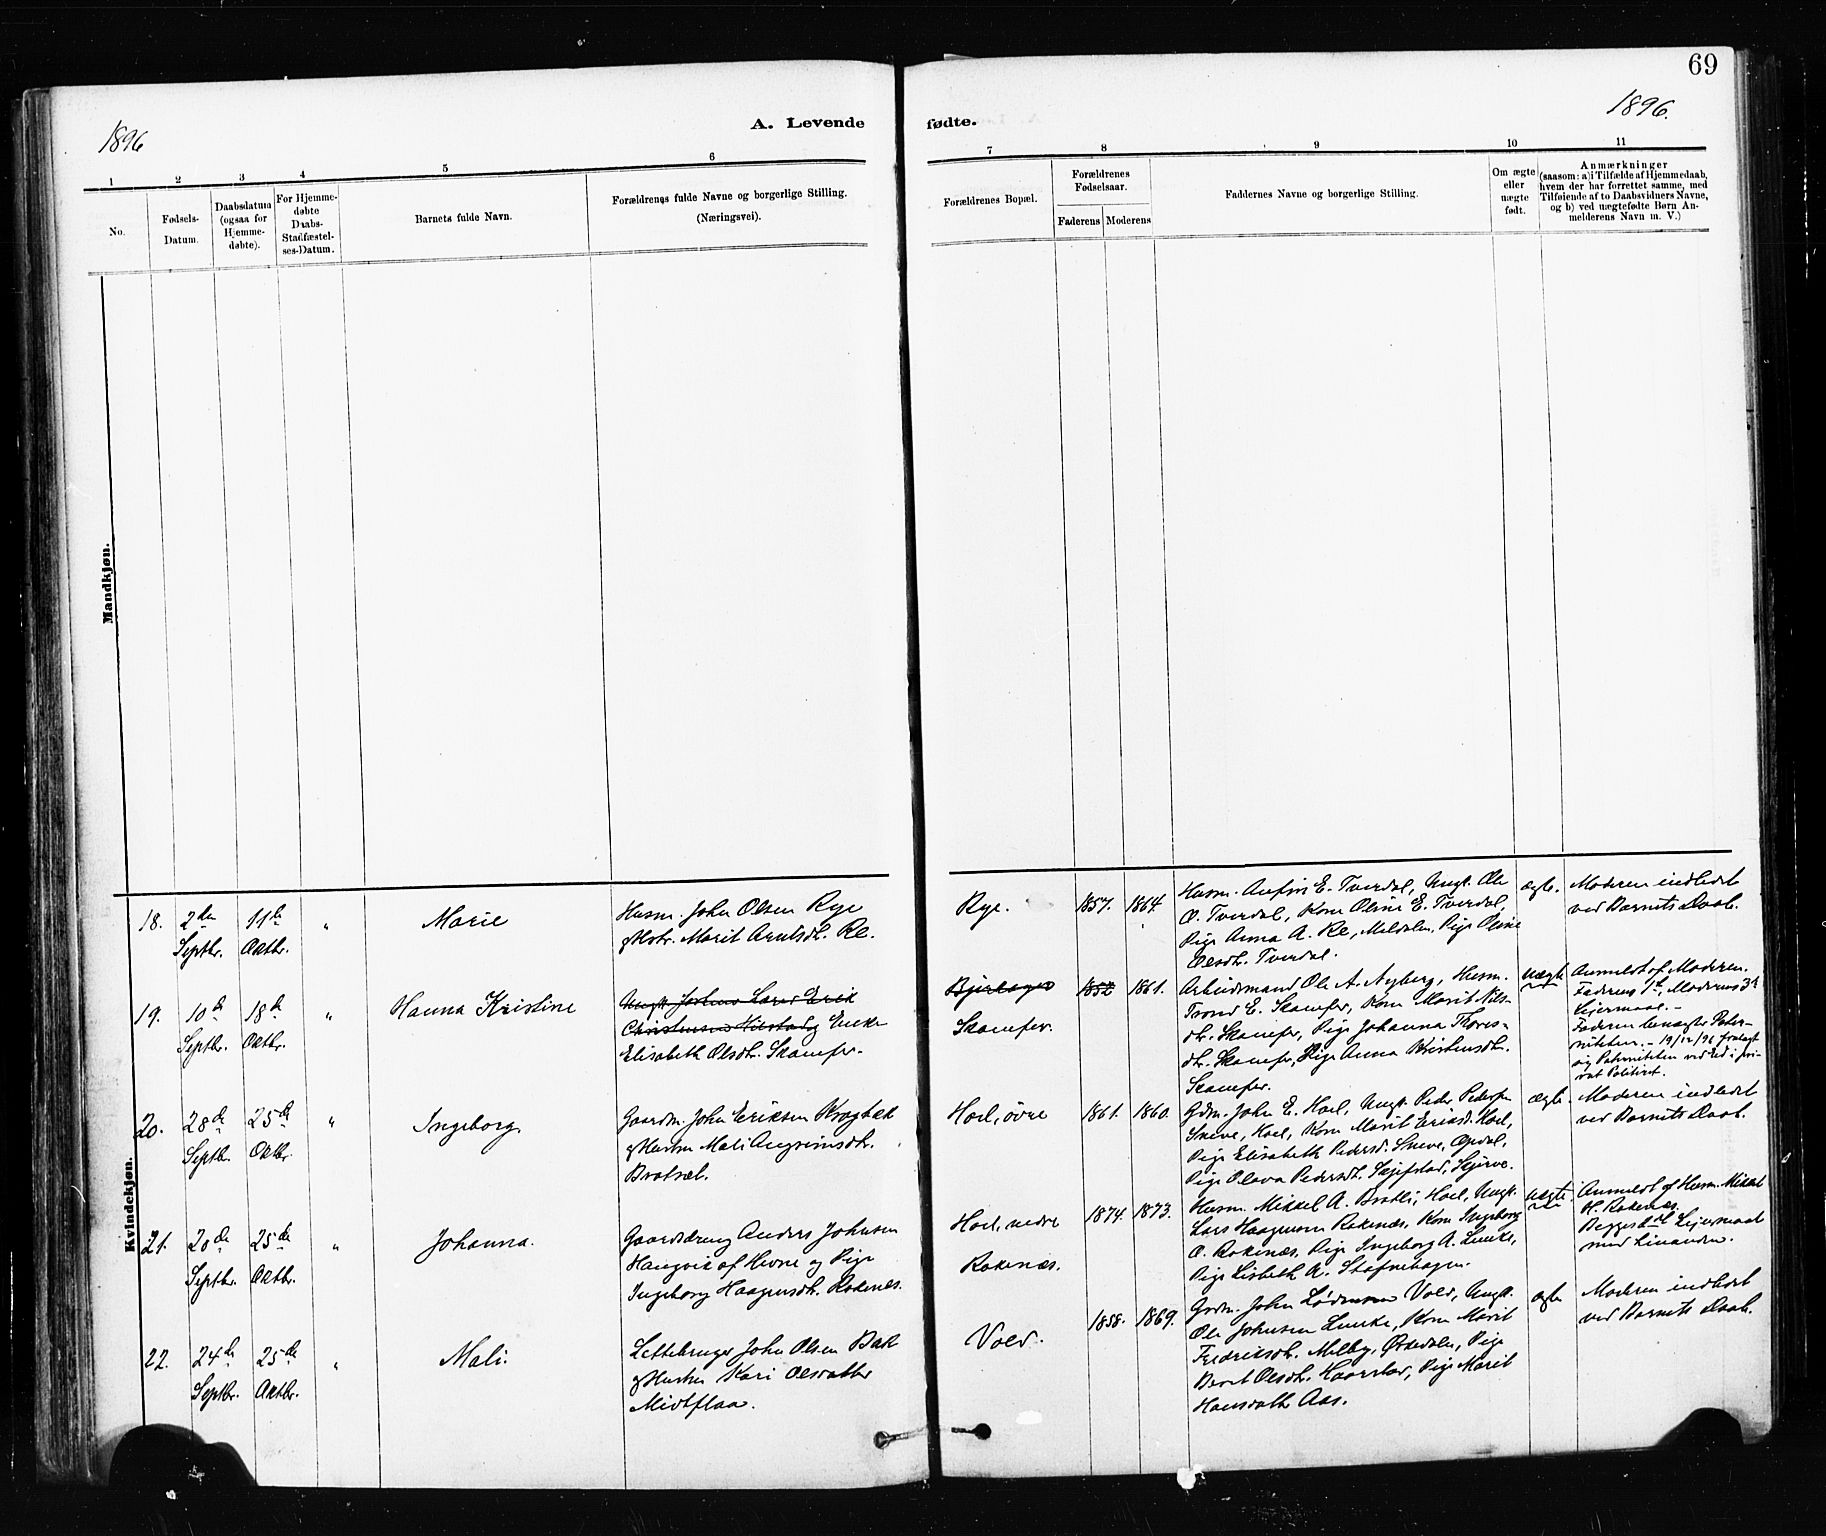 69
1896
A. Levende
fødte.
1896.
1
2
3
4
5
6
7
8
9
10
11
No.
Fødsels-
Datum.
Daabsdatum
(ogsaa for
Hjemme-
døbte).
For Hjemme-
døbte
Daabs-
Stadfæstel-
ses-Datum.
Barnets fulde Navn.
Forældrenes fulde Navne og borgerlige Stilling.
(Næringsvei).
Forældrenes Bopæl.
Forældrenes
Fødselsaar.
Faderens
Moderens
Faddernes Navne og borgerlige Stilling.
Om ægte
eller
uægte
født.
Anmærkninger
(saasom: a) i Tilfælde af Hjemmedaab,
hvem der har forrettet samme, med
Tilføiende af to Daabsvidners Navne,
og b) ved uægtefødte Børn An-
melderens Navn m. V.)
Mandkjøn.
Kvindekjøn.
18.
2den
Septbr.
11te
Oktbr.
"
Marie
Husm. John Olsen Rye
og Hstr. Marit Arntsdtr. Re.
Rye.
1857.
1864.
Husm. Anfin E. Tverdal, Ungk. Ole
O. Tverdal, Kone Oline E. Tverdal,
Pige Anna A. Re, Meldalen, Pige Oline
Olsdtr. Tverdal.
ægte.
Moderen indledet
ved Barnets Daab.
19.
10de
Septbr.
18de
Oktbr.
"
Hanna Kristine
Ungk. Lars Erik
Christensen Enke
Elisabeth Olsdtr. Skamfer.
Skamfer.
1852
1861.
Arbeidsmand Ole A. Nyberg, Husm.
Trond E. Skamfer, Kone Marit Nils-
dtr. Skamfer, Pige Johanna Thores-
dtr. Skamfer, Pige Anna Kristensdtr.
Skamfer.
uægte
Anmeldt af Moderen.
Faderens 1ste, Moderens 3die
Leiermaal. -
Faderen benægter Pater-
niteten. - 19/12/96 fralagt
sig Paterniteten ved Ed i pri-
vat Politiret.
20.
28de
Septbr.
25de
Oktbr.
"
Ingeborg.
Gaardm. John Eriksen Krogbæk
og Hustru Mali Angrimsdtr.
Bratset.
Hoel, øvre
1861.
1860.
Gdm. John E. Hoel, Ungk. Peder Pedersen
Sneve, Hoel, Kone Marit Eriksd. Hoel,
Pige Elisabeth Pedersd. Sneve, Opdal,
Pige Olava Pedersdt.
ægte
Moderen indledet
ved Barnets Daab.
21.
20de
Septbr.
25de
Oktbr.
"
Johanna.
Gaardsdreng Anders Johnsen
Haugvik af Hevne og Pige
Ingeborg Haagensdtr. Rokenæs.
Hoel, nedre
Rokenæs.
1874.
1873.
Husm. Mikkel A. Bratli, Hoel, Ungk.
Lars Haagensen Rokenæs, Kone Ingeborg
O. Rokenæs, Pige Ingeborg A. Lunke,
Pige Lisbeth A. Stafnehagen.
uægte
Anmeldt af Husm. Mikkel
H. Rokenæs.
Begges 1ste Leiermaal
med hinanden.
22.
24de
Septbr.
25de
Oktbr.
"
Mali.
Leilebruger John Olsen Bak
og Hustru Kari Olsdatter
Midtflaa.
Vold.
1858.
1869.
Gdm. John Vold, Ungk.
Ole Johnsen Lunke, Kone Marit
Fredriksdtr. Melby, Ørkedalen, Pige
Beret Olsdtr. Haarstad, Pige Marit
Hansdatt. Aas.
ægte
Moderen indledet
ved Barnets Daab.